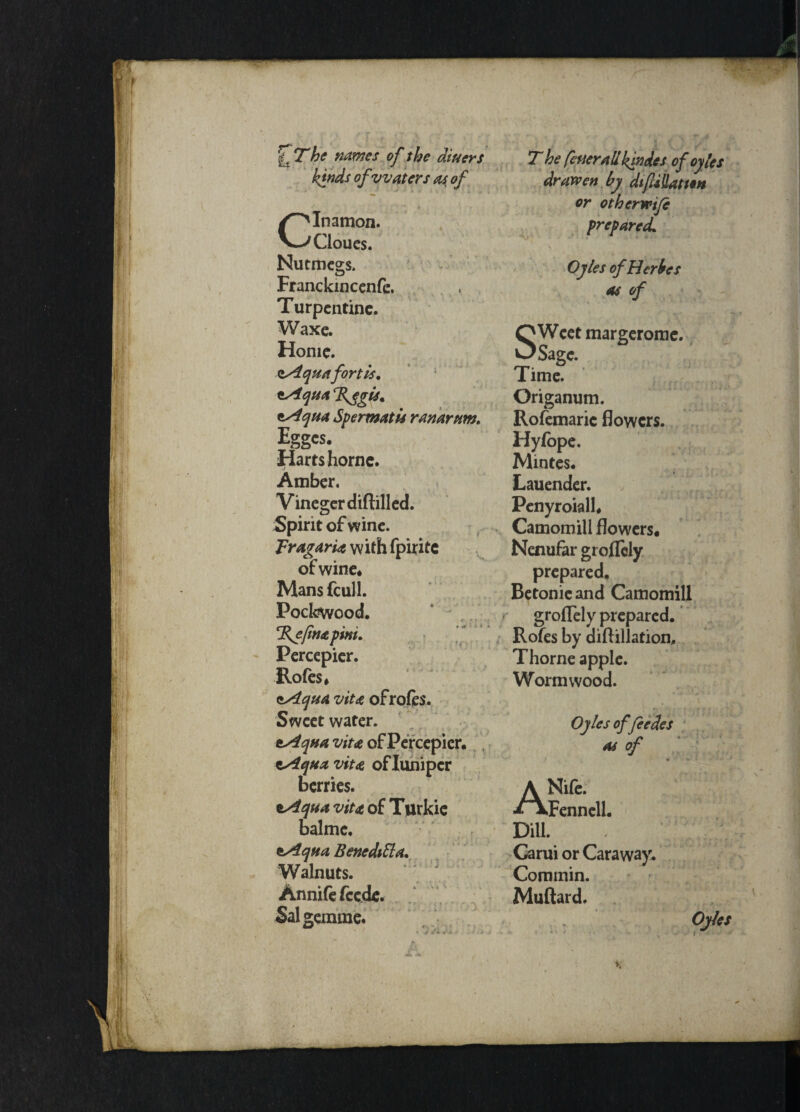 The names of the diuers
kinds of vvaters as of
CInamon.
Cloues.
Nutmegs.
Franckincenſe.
Turpentine.
Waxe.
Honie.
Aqua fortis.
Aqua Regis.
Aqua Spermatis ranarum.
Egges.
Harts horne.
Amber.
Vineger diſtilled.
Spirit of wine.
Fragariæ with ſpirite
of wine.
Mans ſcull.
Pockwood.
Reſinæ pini.
Percepier.
Roſes.
Aqua vitæ of roſes.
Sweet water.
Aqua vitæ of Percepier.
Aqua vitæ of Iuniper
berries.
Aqua vitæ of Turkie
balme.
Aqua Benedicta.
Walnuts.
Anniſe ſeede.
Sal gemme.
The ſeuerall kindes of oyles
drawen by diſtillation
or otherwiſe
prepared.
Oyles of Herbes
as of
SWeet margerome.
Sage.
Time.
Origanum.
Roſemarie flowers.
Hyſope.
Mintes.
Lauender.
Penyroiall.
Camomill flowers.
Nenufar groſſely
prepared.
Betonie and Camomill
groſſely prepared.
Roſes by diſtillation.
Thorne apple.
Wormwood.
Oyles of ſeedes
as of
ANiſe.
Fennell.
Dill.
Carui or Caraway.
Commin.
Muſtard.
Oyles